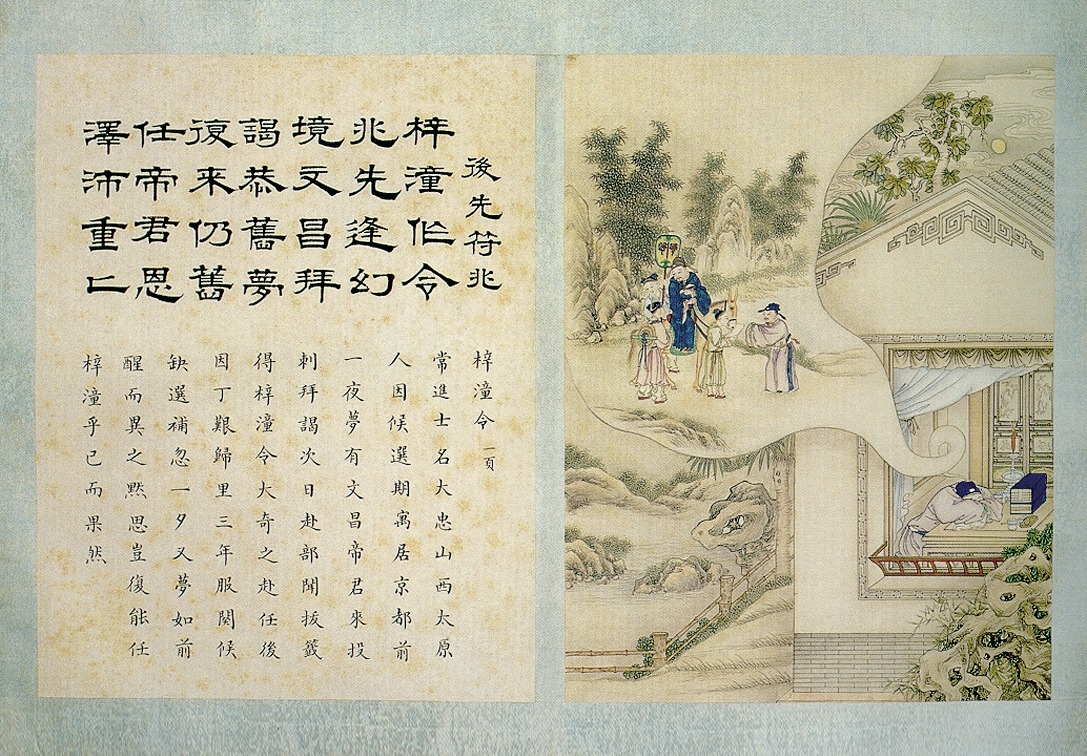 後先符兆
梓潼作令
兆先逢幻
境文昌拜
謁恭舊夢
復来仍舊
任帝君恩
澤沛重仁
梓潼令 一頁
常進士名大忠山西太原
人因候選期寓居京都前
一夜夢有文昌帝君來投
刺拜謁次日赴部聞拔籤
得梓潼令大奇之赴任後
因丁艱歸里三年服闋候
缺選補忽一夕又夢如前
醒而異之黙思豈復能任
梓潼乎已而果然